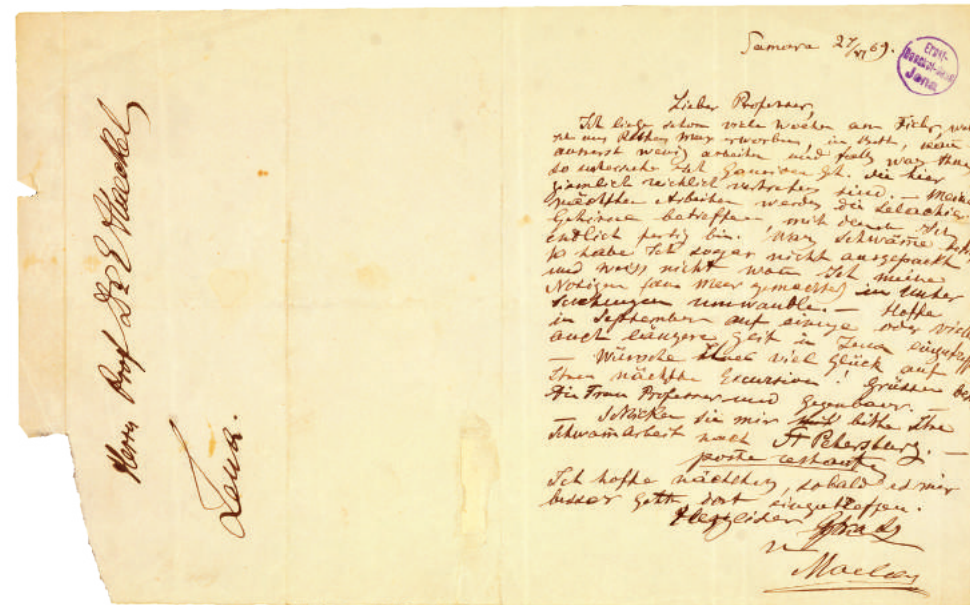 Herrn Prof Dr E Haeckel
Jena.
Samara 27/VI 69.
Ernst-
Haeckel-Haus
Jena
Lieber Professor,
Ich liege schon viele Wochen am Fieber,
ich am Rothen Meer erworben, im Bett, kann
äusserst wenig arbeiten und
so untersuche Ich Ganoiden die hier
ziemlich reichlich vertreten sind. — Meine
nächsten Arbeiten werden die Selachier
Gehirne betreffen mit denen Ich
endlich fertig bin. Was Schwäme
so habe Ich sogar nicht ausgepackt
und weiss nicht wann Ich meine
Notizen (am Meer gemachte) in Unter
suchungen umwandle. — Hoffe
in September auf einige oder viel
auch längere Zeit in Jena
— Wünsche Ihnen viel Glück auf
Ihren nächsten Excursion! Grüssen
die Frau Professor und Gegenbaur. —
— Schicken sie mir bitte Ihre
Schwamarbeit nach St Petersburg. —
poste restante
Ich hoffe nächstens, sobald es mir
besser geht dort einzutreffen.